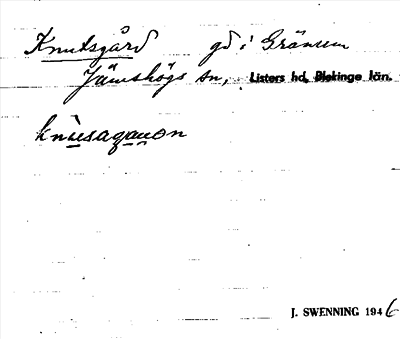 Knutsgård gd i Gränum
Jämshögs sn, Listers hd, Blekinge län.
knùsagauon
J. SWENNING 1946